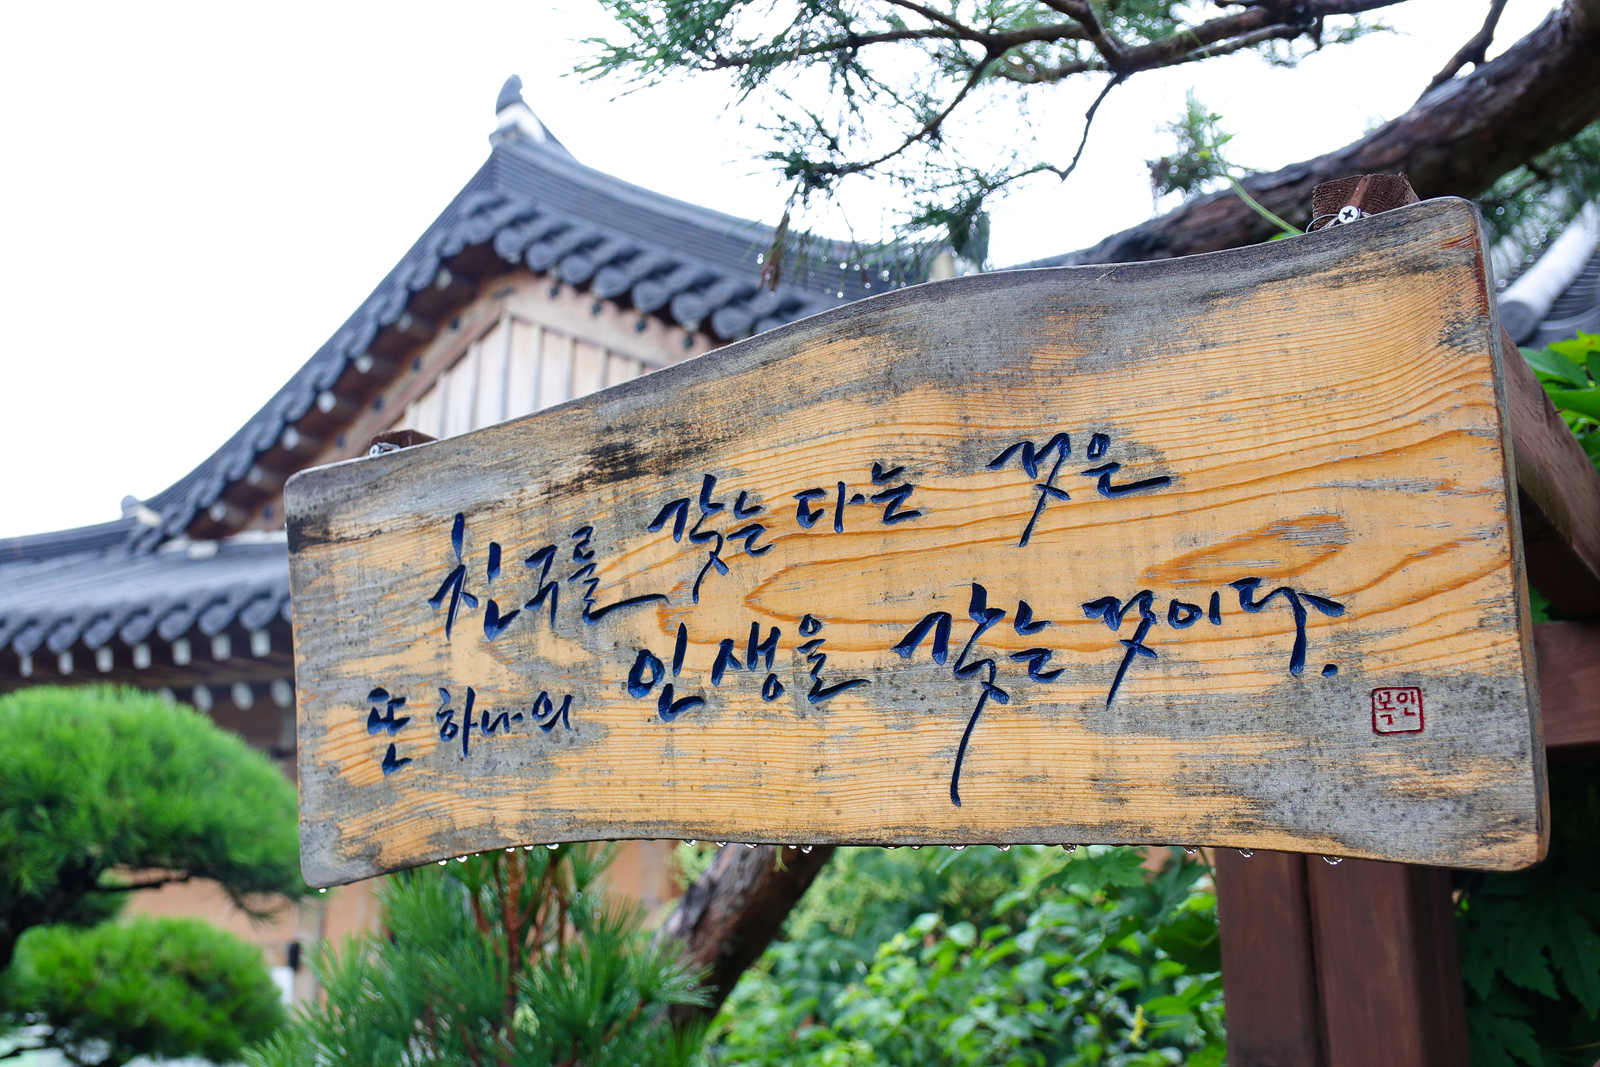 친구를 갖는다는 것은
또 하나의 인생을 갖는 것이다.
목인